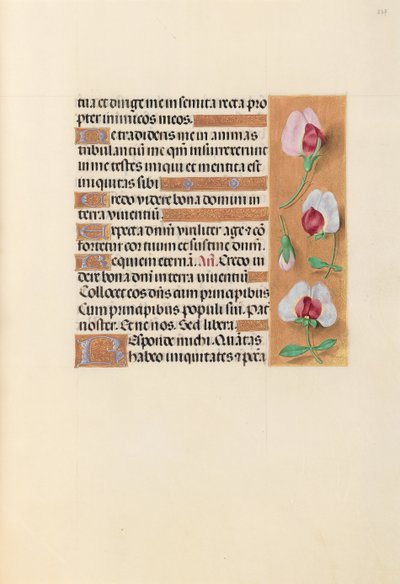 237
tua et dirige me in semita recta pro
pter inimicos meos.
Ne tradideris me in animas
tribulanciũ me qm̃ insurrexerunt
in me testes iniqui et mentita est
iniquitas sibi
Credo videre bona domini in
terra viventiũ.
Expecta dñm viriliter age ⁊ cõ
fortetur cor tuum et sustine dñm.
Requiem eternã. Añ. Credo vi
dere bona dñi in terra viventiũ
Collocet eos dñs cum principibus
Cum principibus populi sui. Pat
noster. Et ne nos. Sed libera
Responde michi. Quãtas
habeo iniquitates ⁊ pctã